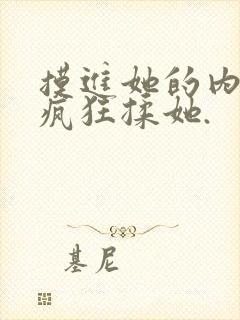 摸进她的内
疯狂揉她.
基尼